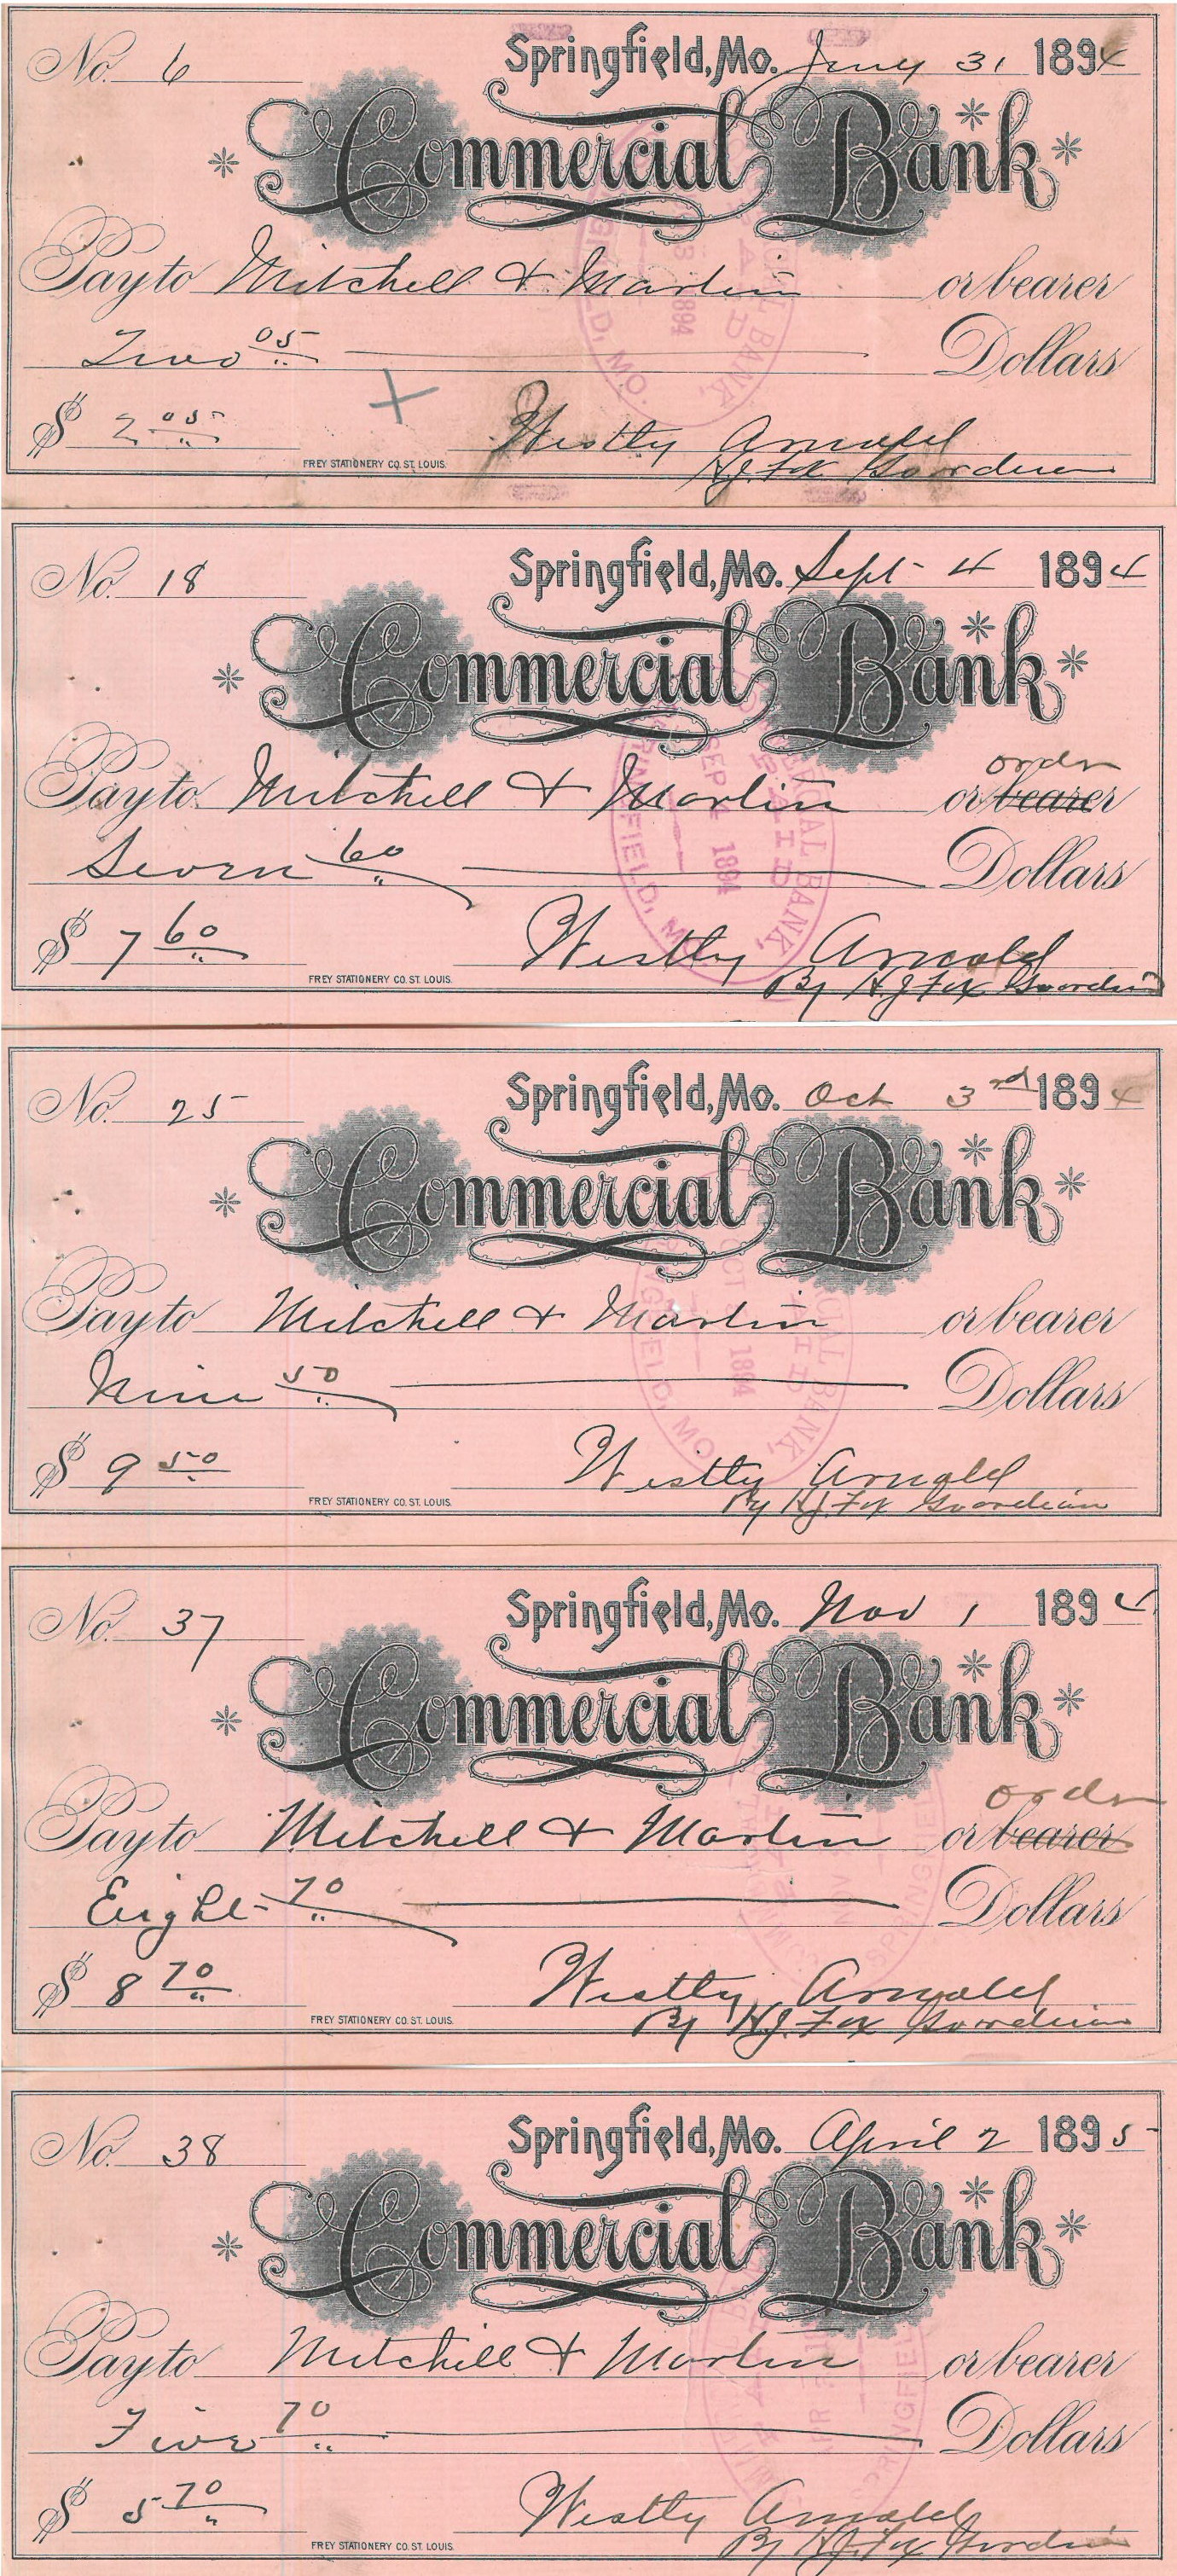 No. 6 Springfield, Mo. Jany 31 1894
Commercial Bank
Pay to Mitchell & Martin or bearer
Two 05 Dollars
$ 2 05
Westly Arnold
FREY STATIONERY CO. ST. LOUIS.
H.J. Fox Guardian
No. 18 Springfield, Mo. Sept 4 1894
Commercial Bank
order
Pay to Mitchell & Martin or bearer
Seven 60 Dollars
$ 7 60
Westly Arnold
FREY STATIONERY CO. ST. LOUIS.
By H.J. Fox Guardian
SEP 4 1894
PAID
No. 25 Springfield, Mo. Oct 3rd 1894
Commercial Bank
Pay to Mitchell & Martin or bearer
Nine 50 Dollars
$ 9 50
Westly Arnold
FREY STATIONERY CO. ST. LOUIS.
By H.J. Fox Guardian
No. 37 Springfield, Mo. Nov 1 1894
Commercial Bank
order
Pay to Mitchell & Martin or bearer
Eight 70 Dollars
$ 8 70
Westly Arnold
FREY STATIONERY CO. ST. LOUIS.
By H.J. Fox Guardian
No. 38 Springfield, Mo. April 2 1895
Commercial Bank
Pay to Mitchell & Martin or bearer
Five 70 Dollars
$ 5 70
Westly Arnold
FREY STATIONERY CO. ST. LOUIS.
By H.J. Fox Guardian